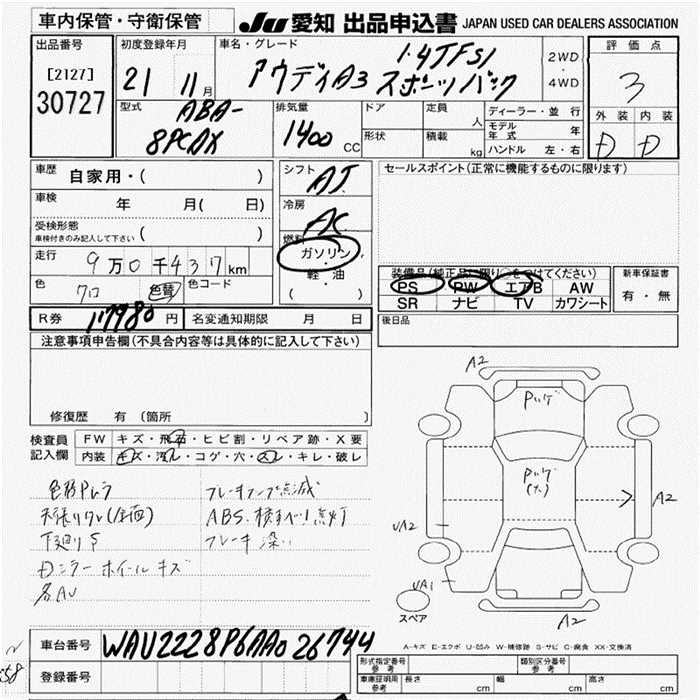 車内保管・守衛保管
JU 愛知 出品申込書 JAPAN USED CAR DEALERS ASSOCIATION
出品番号
[2127]
30727
初度登録年月
21 11月
車名・グレード
アウディA3 1.4TFSI スポーツバック
2WD
・
4WD
評価点
3
外装 内装
D D
型式
ABA-
8PCAX
排気量
1400 CC
ドア
形状
定員 人
積載 kg
ディーラー・並行
モデル年式 年
ハンドル 左・右
車歴
自家用・( )
車検
年 月( 日)
受検形態
車検付きのみ記入して下さい ( )
走行
9万0千437km
色
クロ
色替
色コード
シフト
AT
冷房
AC
燃料
ガソリン
・
軽・油
( )
セールスポイント(正常に機能するものに限ります)
装備品(純正品に限り○をつけてください)
PS PW エアB AW
SR ナビ TV カワシート
新車保証書
有・無
R券 11980円
名変通知期限 月 日
後日品
注意事項申告欄(不具合内容等は具体的に記入して下さい)
修復歴 有(箇所 )
検査員
記入欄
FW キズ・飛石・ヒビ割・リペア跡・X要
内装 キズ・汚レ・コゲ・穴・スレ・キレ・破レ
天張りワレ(全面)
下廻りS
Dミラー ホイールキズ
各AU
ブレーキランプ点滅
ABS.横すべり点灯
ブレーキ深い
A2
A2
UA2
UA1
A2
スペア
A-キズ E-エクボ U-凹み W-補修跡 S-サビ C-腐食 XX-交換済
車台番号
WAUZZZ8P6AA026744
登録番号
形式指定番号
参考
類別区分番号
参考
車庫証明用
参考
長さ cm 幅 cm 高さ cm